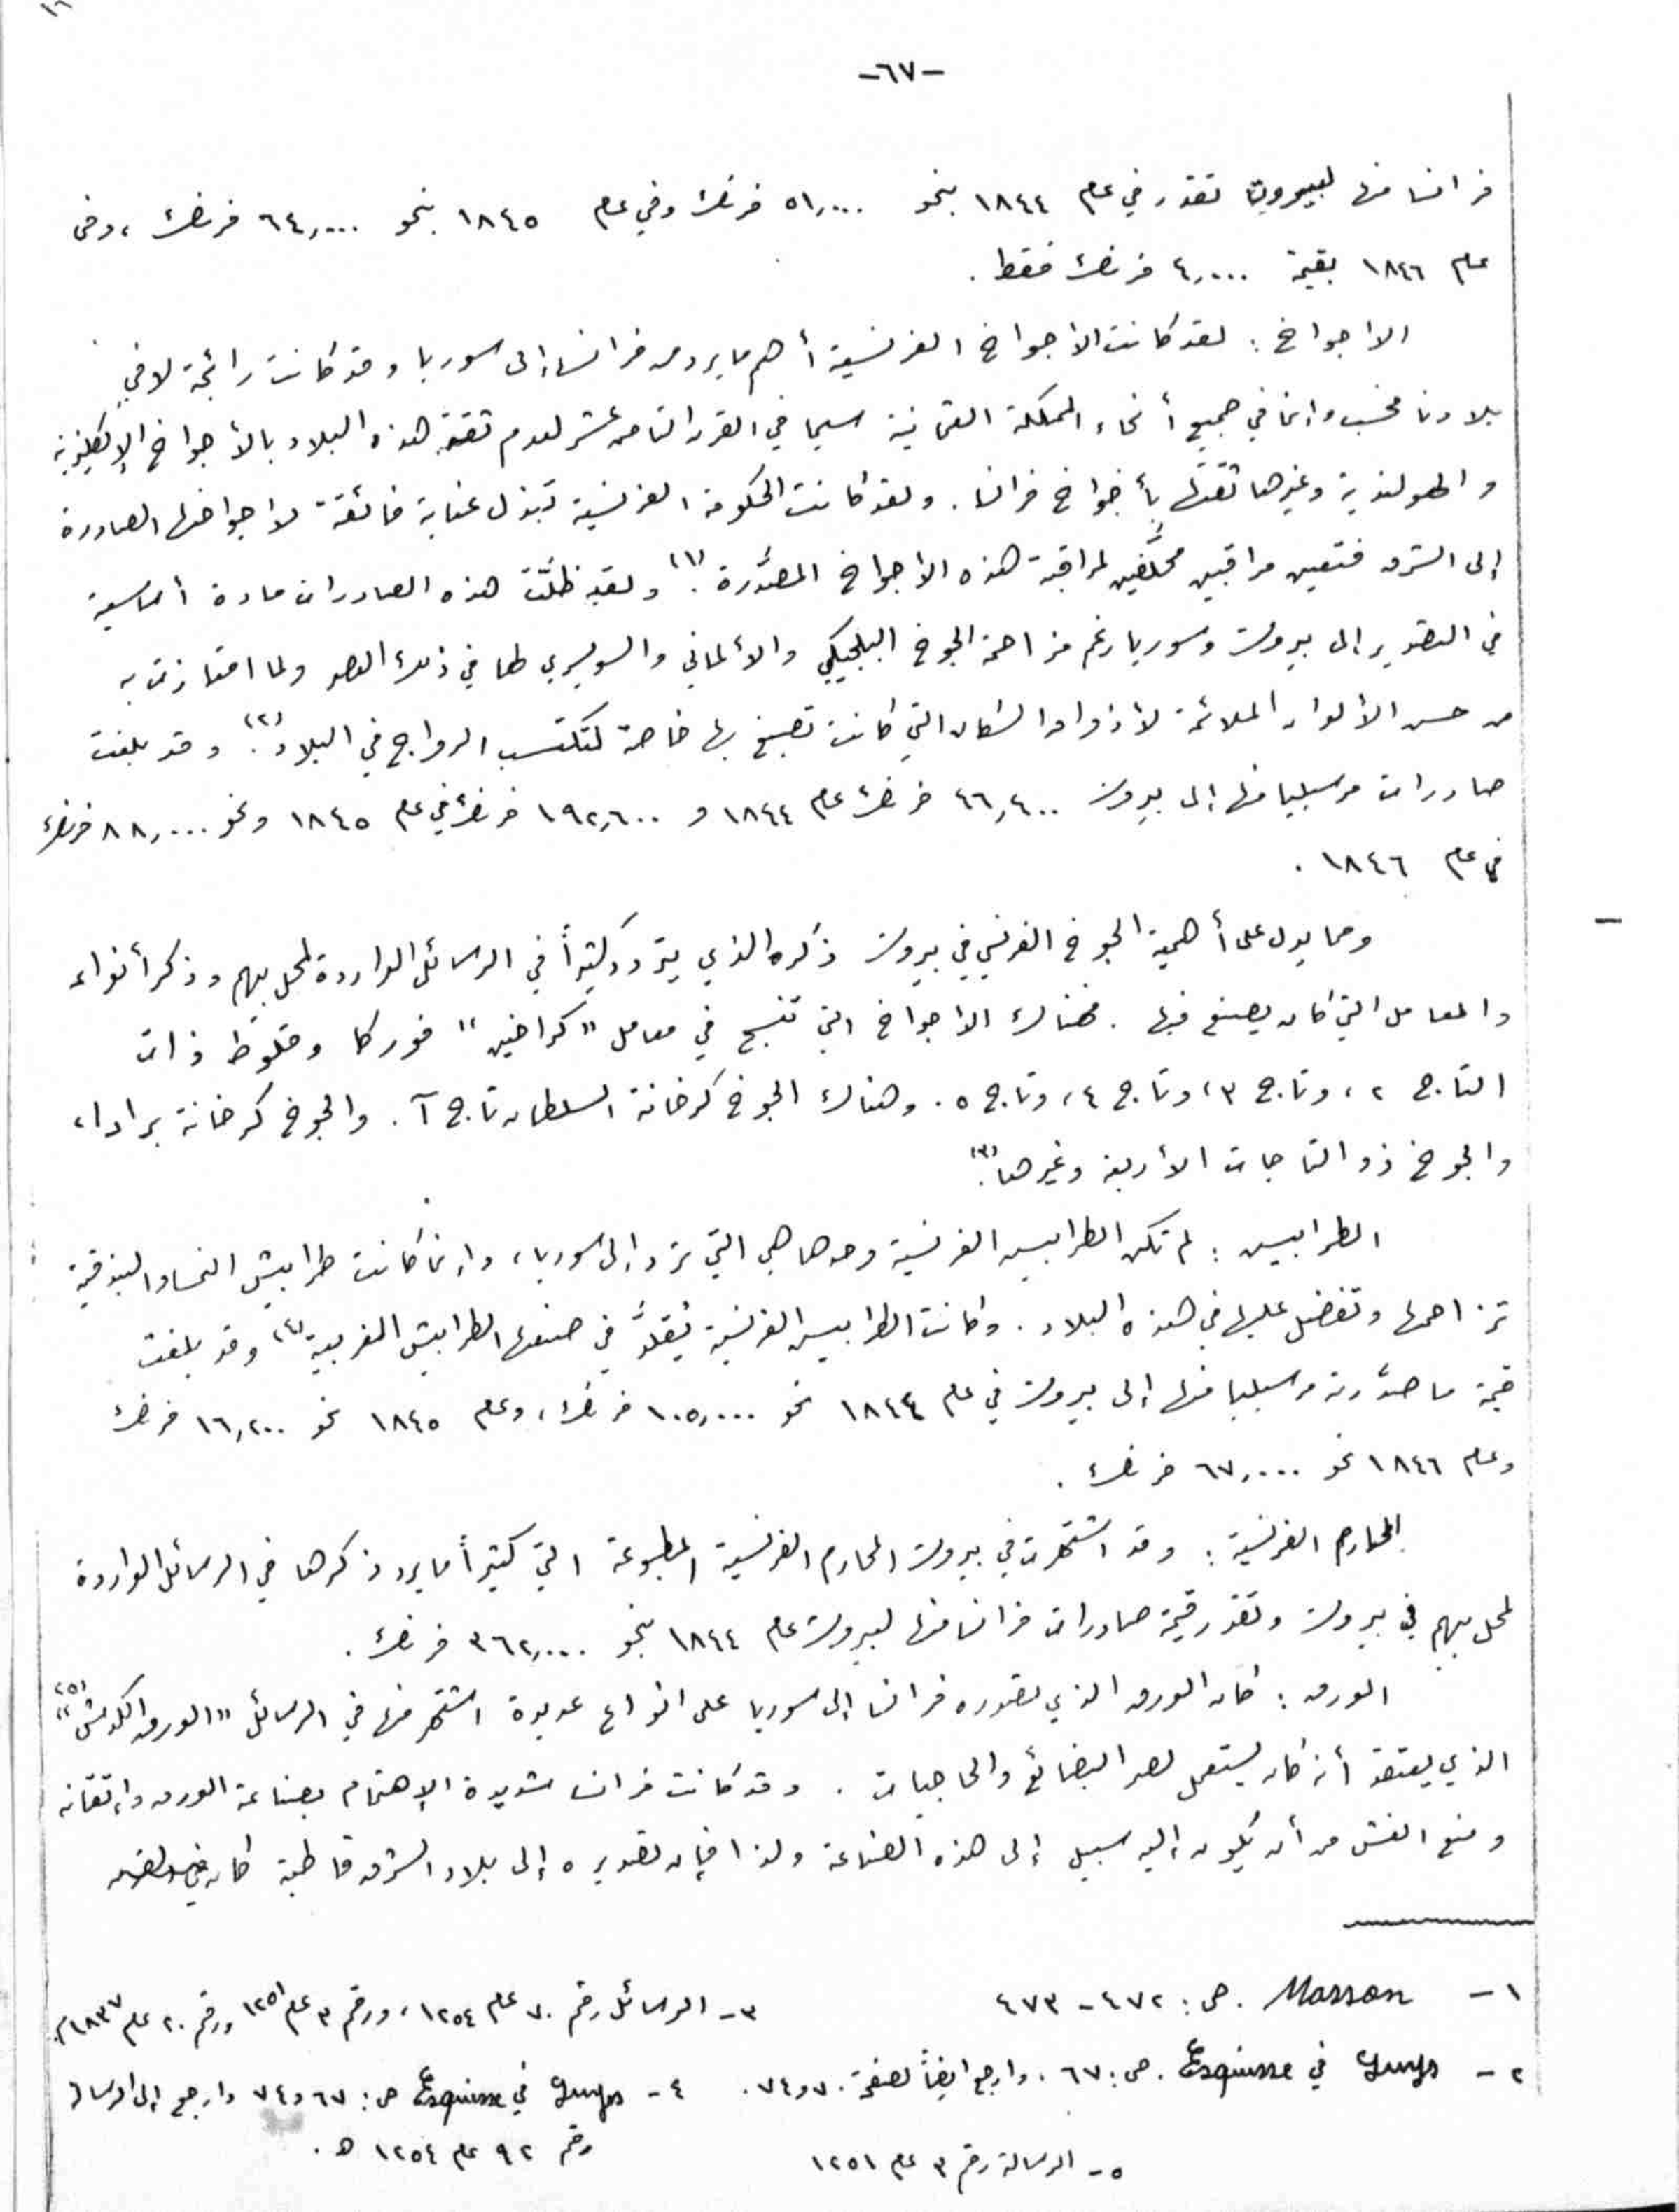 -٦٧-
فرانسا منها لبيروت تقدر في عام ١٨٤٤ بنحو ٥١,٠٠٠ فرنك وفي عام ١٨٤٥ بنحو ٦٤,٠٠٠ فرنك ، وفي
عام ١٨٤٦ بقيمة ٤,٠٠٠ فرنك فقط .
الاجواخ : لقد كانت الاجواخ الفرنسية أهم ما يرد من فرانسا إلى سوريا وقد كانت رائجة لا في
بلادنا فحسب وإنما في جميع أنحاء المملكة العثمانية سيما في القرن الثامن عشر لعدم ثقة هذه البلاد بالأجواخ الإنكليزية
والهولندية وغيرها ثقتها بأجواخ فرانسا . ولقد كانت الحكومة الفرنسية تبذل عناية فائقة لاجواخها الصادرة
إلى الشرق فتعين مراقبين محلّفين لمراقبة هذه الاجواخ المصدَّرة .(١) ولقد ظلَّت هذه الصادرات مادة أساسية
في التصدير إلى بيروت وسوريا رغم مزاحمة الجوخ البلجيكي والألماني والسويسري لها في ذلك العصر ولما امتازت به
من حسن الألوان الملائمة لأذواق السكان التي كانت تصبغ بها خاصة لتكتسب الرواج في البلاد .(٢) وقد بلغت
صادرات مرسيليا منها إلى بيروت ٤٦,٤٠٠ فرنك عام ١٨٤٤ و ١٩٢,٦٠٠ فرنك في عام ١٨٤٥ ونحو ٨٨,٠٠٠ فرنك
في عام ١٨٤٦ .
ومما يدل على أهمية الجوخ الفرنسي في بيروت ذكره الذي يتردد كثيراً في الرسائل الواردة لمحل بيهم وذكر أنواعه
والمعامل التي كان يصنع فيها . فهناك الاجواخ التي تنسج في معامل "كراخين" فوركا وقلوظ ذات
التاج ٢ ، وتاج ٣ ، وتاج ٤ ، وتاج ٥ . وهناك الجوخ كرخانة السلطان تاج آ . والجوخ كرخانة برادا ،
والجوخ ذو التاجات الأربعة وغيرها .(٣)
الطرابيس : لم تكن الطرابيس الفرنسية وحدها هي التي ترد إلى سوريا ، وإنما كانت طرابيش النمسا والبندقية
تزاحمها وتفضل عليها في هذه البلاد . وكانت الطرابيس الفرنسية تُقلّد في صنعها الطرابيش المغربية (٤) وقد بلغت
قيمة ما صدَّرته مرسيليا منها إلى بيروت في عام ١٨٤٤ نحو ١٠٥,٠٠٠ فرنك ، وعام ١٨٤٥ نحو ١٦,٢٠٠ فرنك
وعام ١٨٤٦ نحو ٦٧,٠٠٠ فرنك .
المحارم الفرنسية : وقد اشتهرت في بيروت المحارم الفرنسية المطبوعة التي كثيراً ما يرد ذكرها في الرسائل الواردة
لمحل بيهم في بيروت وتقدر قيمة صادرات فرانسا منها لبيروت عام ١٨٤٤ بنحو ٣٦٢,٠٠٠ فرنك .
الورق : كان الورق الذي تصدره فرانسا إلى سوريا على انواع عديدة اشتهر منها في الرسائل "الورق الكدش"(٥)
الذي يعتقد أنه كان يستعمل لصر البضائع والحاجيات . وقد كانت فرانسا شديدة الإهتمام بصناعة الورق وإتقانه
ومنع الغش من أن يكون إليه سبيل إلى هذه الصناعة ولذا فإن تصديره إلى بلاد الشرق قاطبة كان
١ - Masson . ص : ٤٧٢ - ٤٧٣
٢ - Guys في Esquisse . ص : ٦٧ . وارجع ايضاً لصفحة ٧٠ و ٧٤ .
٣ - الرسائل رقم ٧٠ عام ١٢٥٤ ، ورقم ٣ عام ١٢٥١ ورقم ٢٠ عام ١٨٣٧م.
٤ - Guys في Esquisse ص : ٦٧ و ٧٤ وارجع إلى الرسالة
رقم ٩٢ عام ١٢٥٤ ه .
٥ - الرسالة رقم ٣ عام ١٢٥١